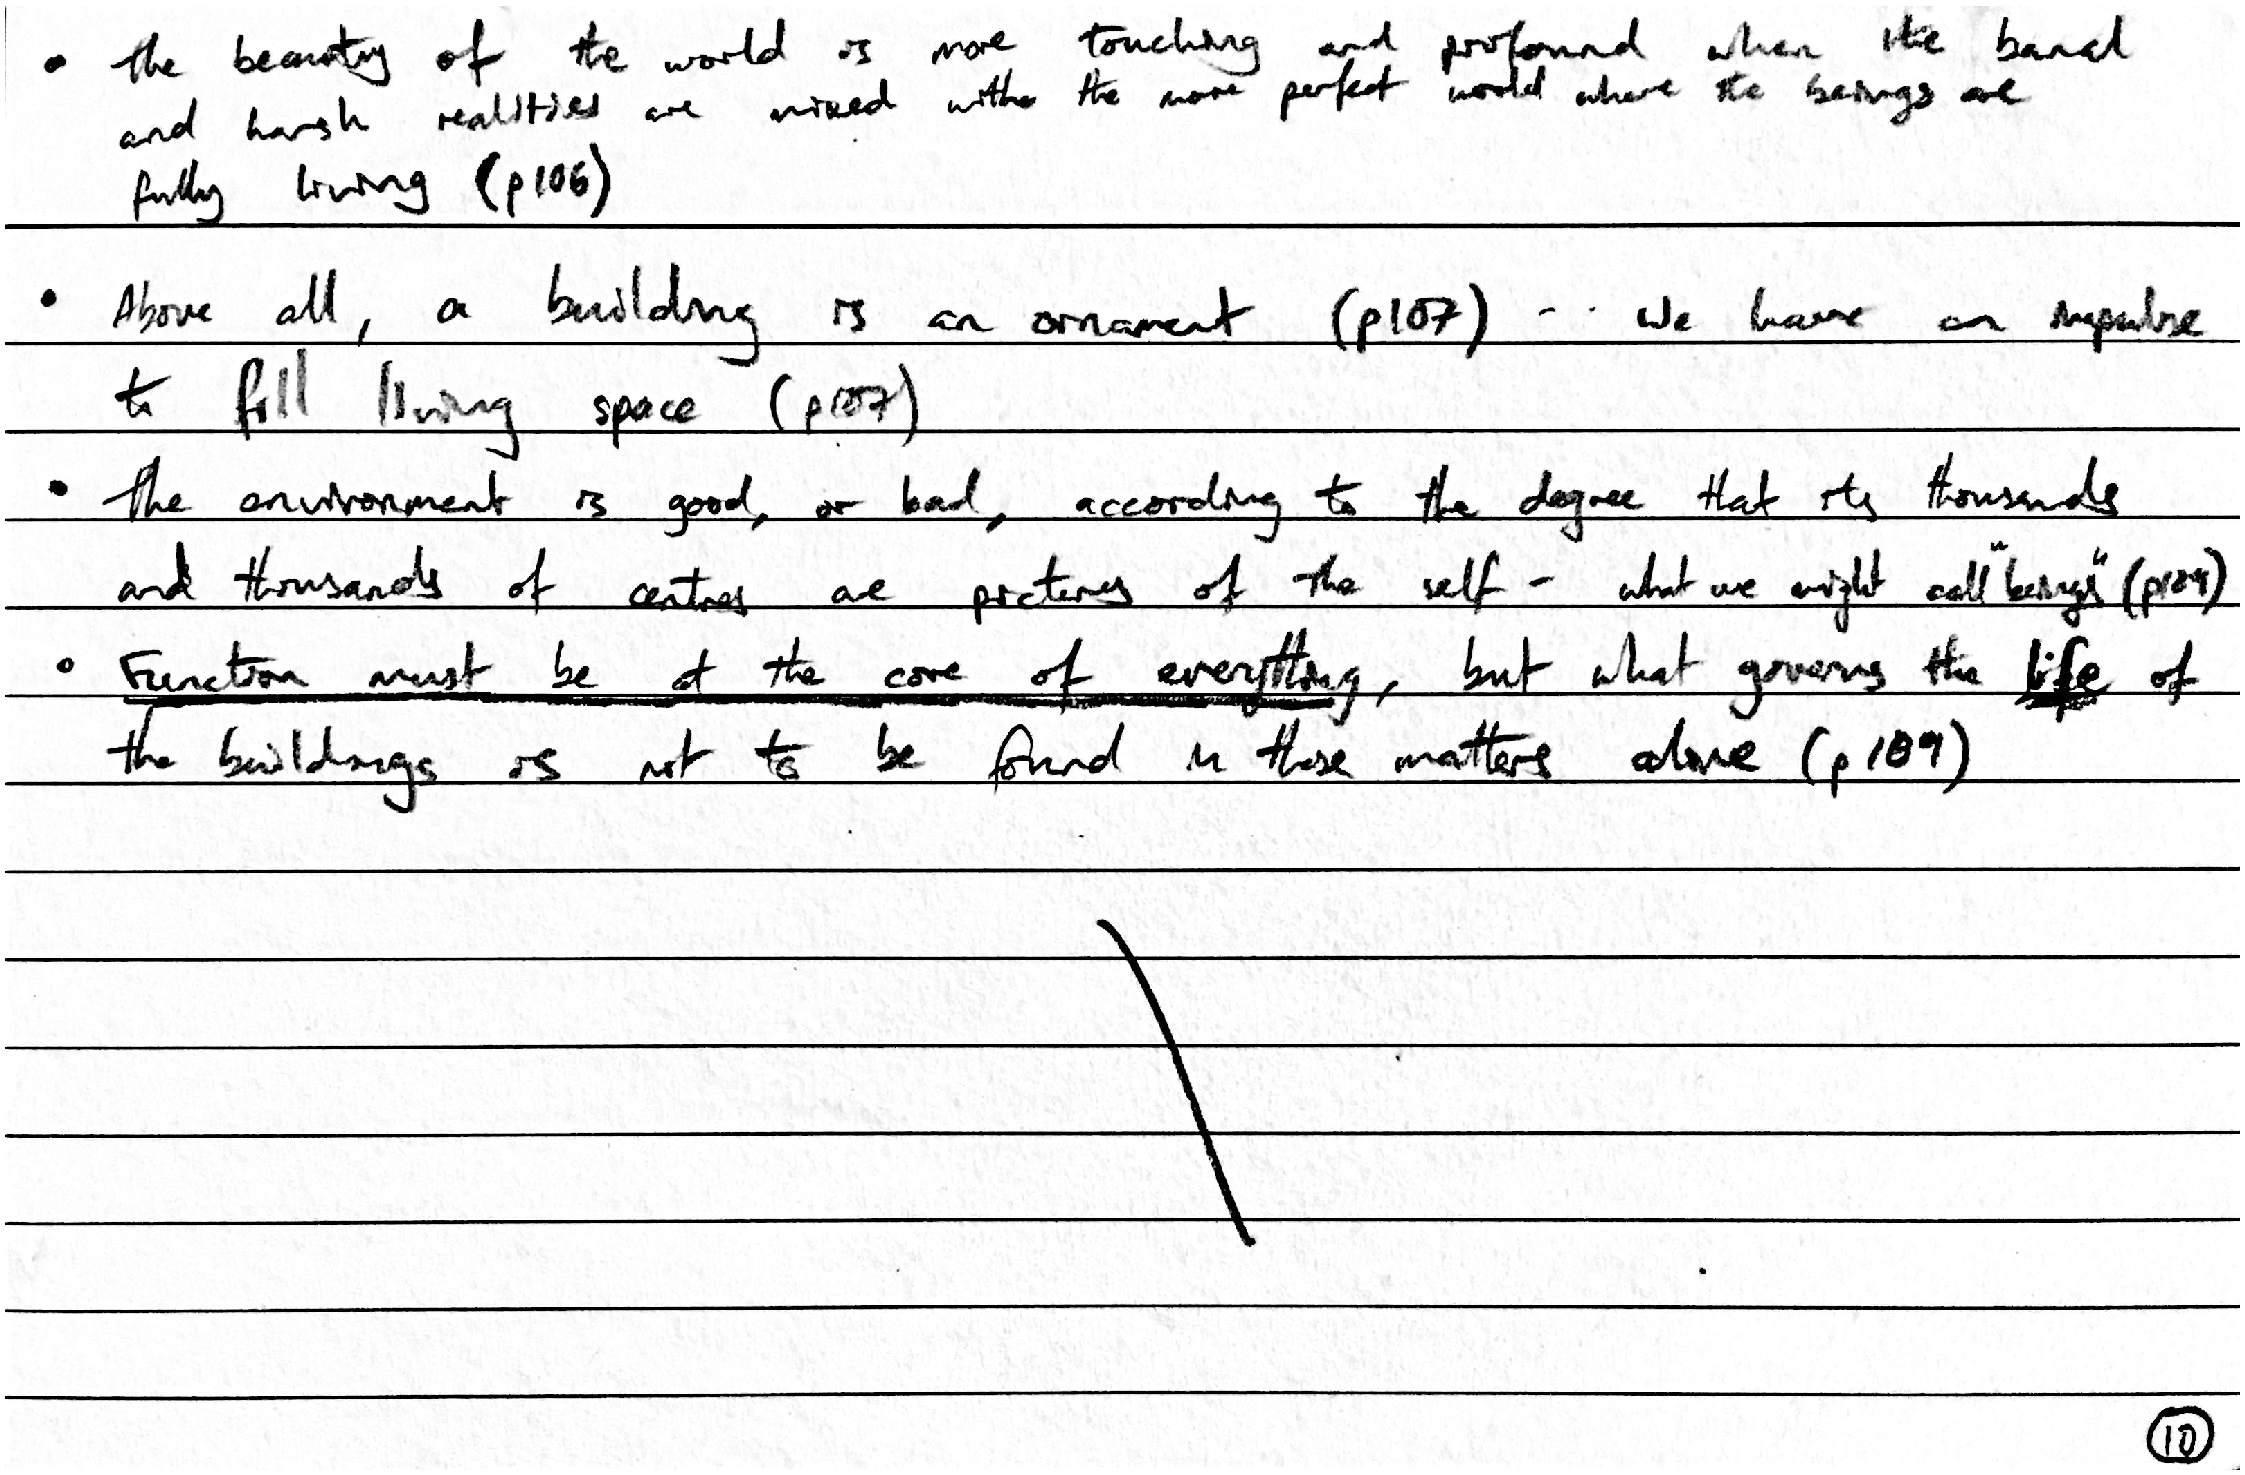 • The beauty of the world is more touching and profound when the banal
and harsh realities are mixed with the more perfect world where the beings are
fully living (p106)
• Above all, a building is an ornament (p107) ... We have an impulse
to fill living space (p107)
• The environment is good, or bad, according to the degree that its thousands
and thousands of centres are pictures of the self - what we might call "beings" (p109)
• Function must be at the core of everything, but what governs the life of
the buildings is not to be found in those matters alone (p109)
10